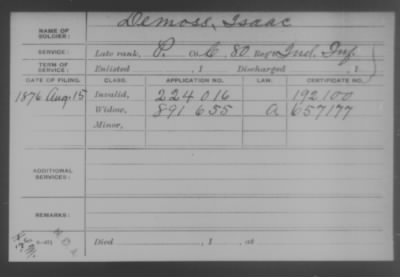 Demoss, Isaac
NAME OF SOLDIER:
SERVICE: Late rank, P. Co. C, 80 Reg't Ind. Inf.
TERM OF SERVICE: Enlisted , 1 Discharged , 1
DATE OF FILING. CLASS. APPLICATION NO. LAW. CERTIFICATE NO.
1876 Aug. 15 Invalid, 224 016 192 100
Widow, 891 655 a 657177
Minor,
ADDITIONAL SERVICES:
REMARKS:
Died , 1 , at